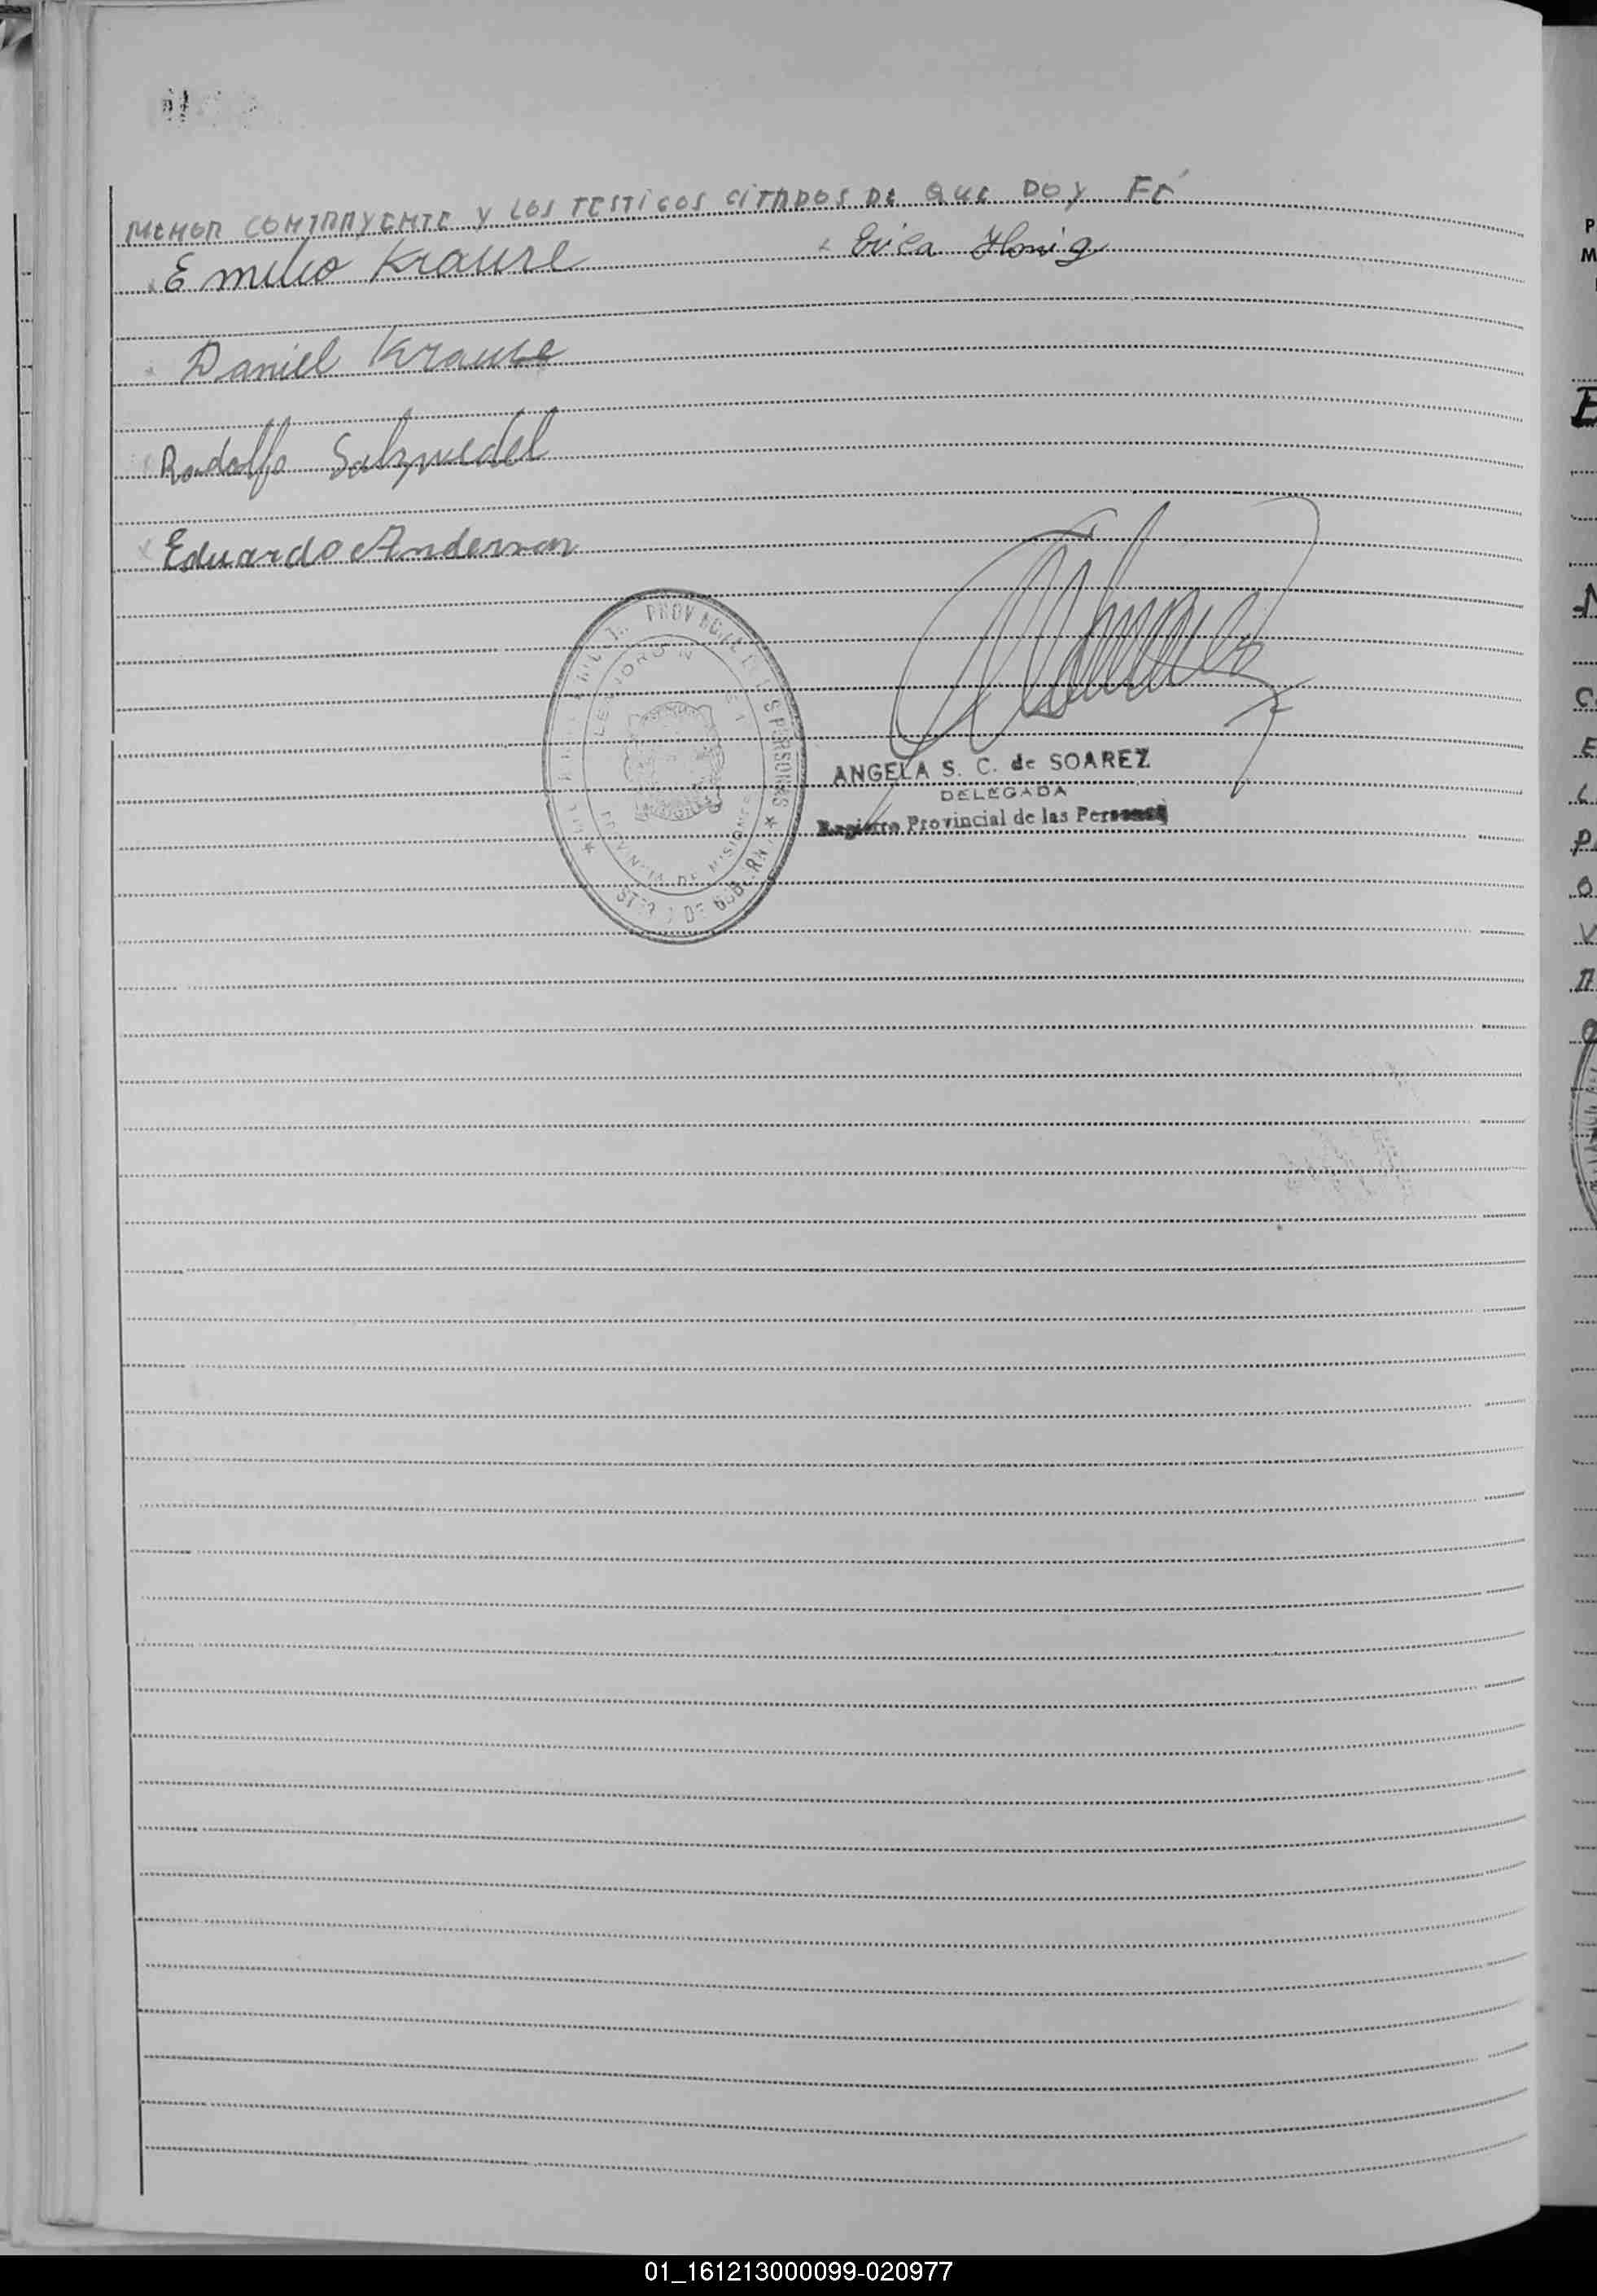 MENOR CONTRAYENTE Y LOS TESTIGOS CITADOS DE QUE DOY FÉ
Emilio Krause x Erica Honig
Daniel Krause
Rodolfo Salzwedel
x Eduardo Anderson
ANGELA S. C. de SOAREZ
DELEGADA
Registro Provincial de las Personas
PROVINCIA DE MISIONES
01_161213000099-020977